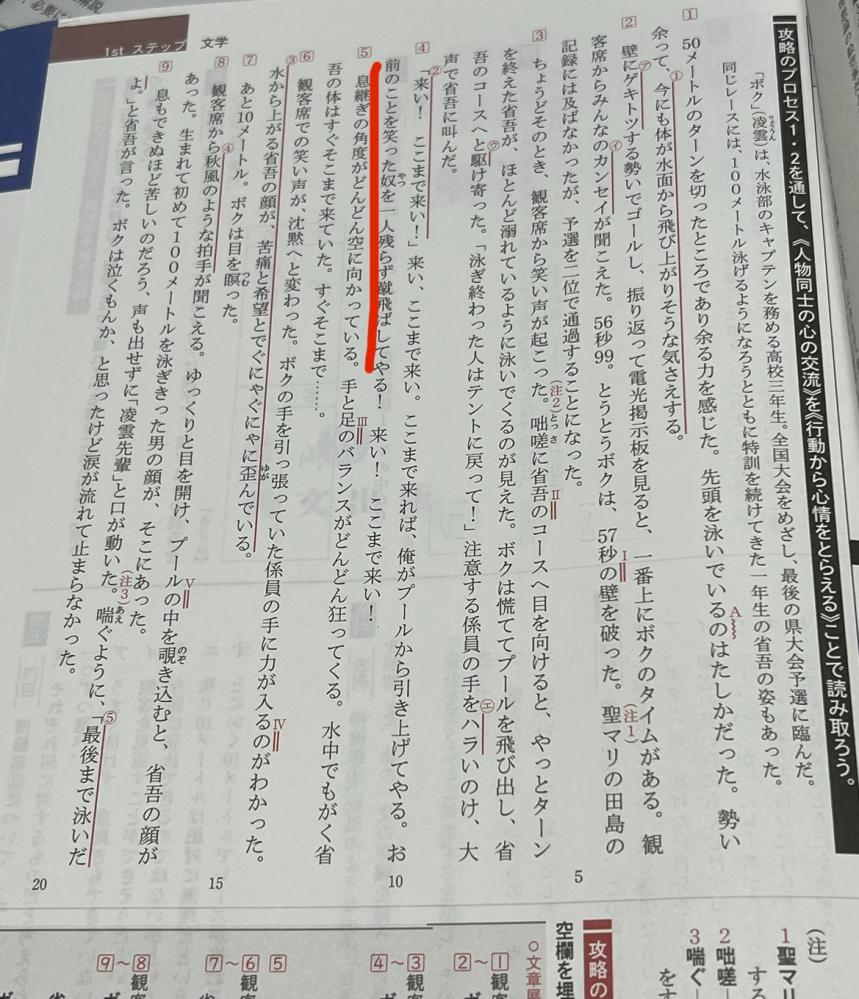 攻略のプロセス1・2を通して、《人物同士の心の交流》を《行動から心情をとらえる》ことで読み取ろう。
「ボク」(凌雲)は、水泳部のキャプテンを務める高校三年生。全国大会をめざし、最後の県大会予選に臨んだ。
同じレースには、100メートル泳げるようになろうとともに特訓を続けてきた一年生の省吾の姿もあった。
1 50メートルのターンを切ったところであり余る力を感じた。先頭を泳いでいるのはたしかだった。勢い
余って、①今にも体が水面から飛び上がりそうな気さえする。
2 壁に㋐ゲキトツする勢いでゴールし、振り返って電光掲示板を見ると、一番上にボクのタイムがある。観
客席からみんなの㋑カンセイが聞こえた。56秒99。とうとうボクは、57秒の壁を破った。聖マリの田島の
記録には及ばなかったが、予選を二位で通過することになった。
3 ちょうどそのとき、観客席から笑い声が起こった。咄嗟に省吾のコースへ目を向けると、やっとターン
を終えた省吾が、ほとんど溺れているように泳いでくるのが見えた。ボクは慌ててプールを飛び出し、省
吾のコースへと㋒駆け寄った。「泳ぎ終わった人はテントに戻って!」注意する係員の手を㋓ハラいのけ、大
声で省吾に叫んだ。
4 ②「来い! ここまで来い!」来い、ここまで来い。ここまで来れば、俺がプールから引き上げてやる。お
前のことを笑った奴を一人残らず蹴飛ばしてやる! 来い! ここまで来い!
5 息継ぎの角度がどんどん空に向かっている。手と足のバランスがどんどん狂ってくる。水中でもがく省
吾の体はすぐそこまで来ていた。すぐそこまで……。
6 観客席での笑い声が、沈黙へと変わった。ボクの手を引っ張っていた係員の手に力が入るのがわかった。
③水から上がる省吾の顔が、苦痛と希望とでぐにゃぐにゃに歪んでいる。
7 あと10メートル。ボクは目を瞑った。
8 観客席から④秋風のような拍手が聞こえる。ゆっくりと目を開け、プールの中を覗き込むと、省吾の顔が
あった。生まれて初めて100メートルを泳ぎきった男の顔が、そこにあった。
9 息もできぬほど苦しいのだろう、声も出せずに「凌雲先輩」と口が動いた。喘ぐように、「⑤最後まで泳いだ
よ。」と省吾が言った。ボクは泣くもんか、と思ったけど涙が流れて止まらなかった。
5
10
15
20
1st ステップ 文学
(注)
1 聖マリ
2 咄嗟
3 喘ぐ
攻略の
空欄を埋
1~2 観客
3~4 観客
5
6~7 観客
8~9 観客